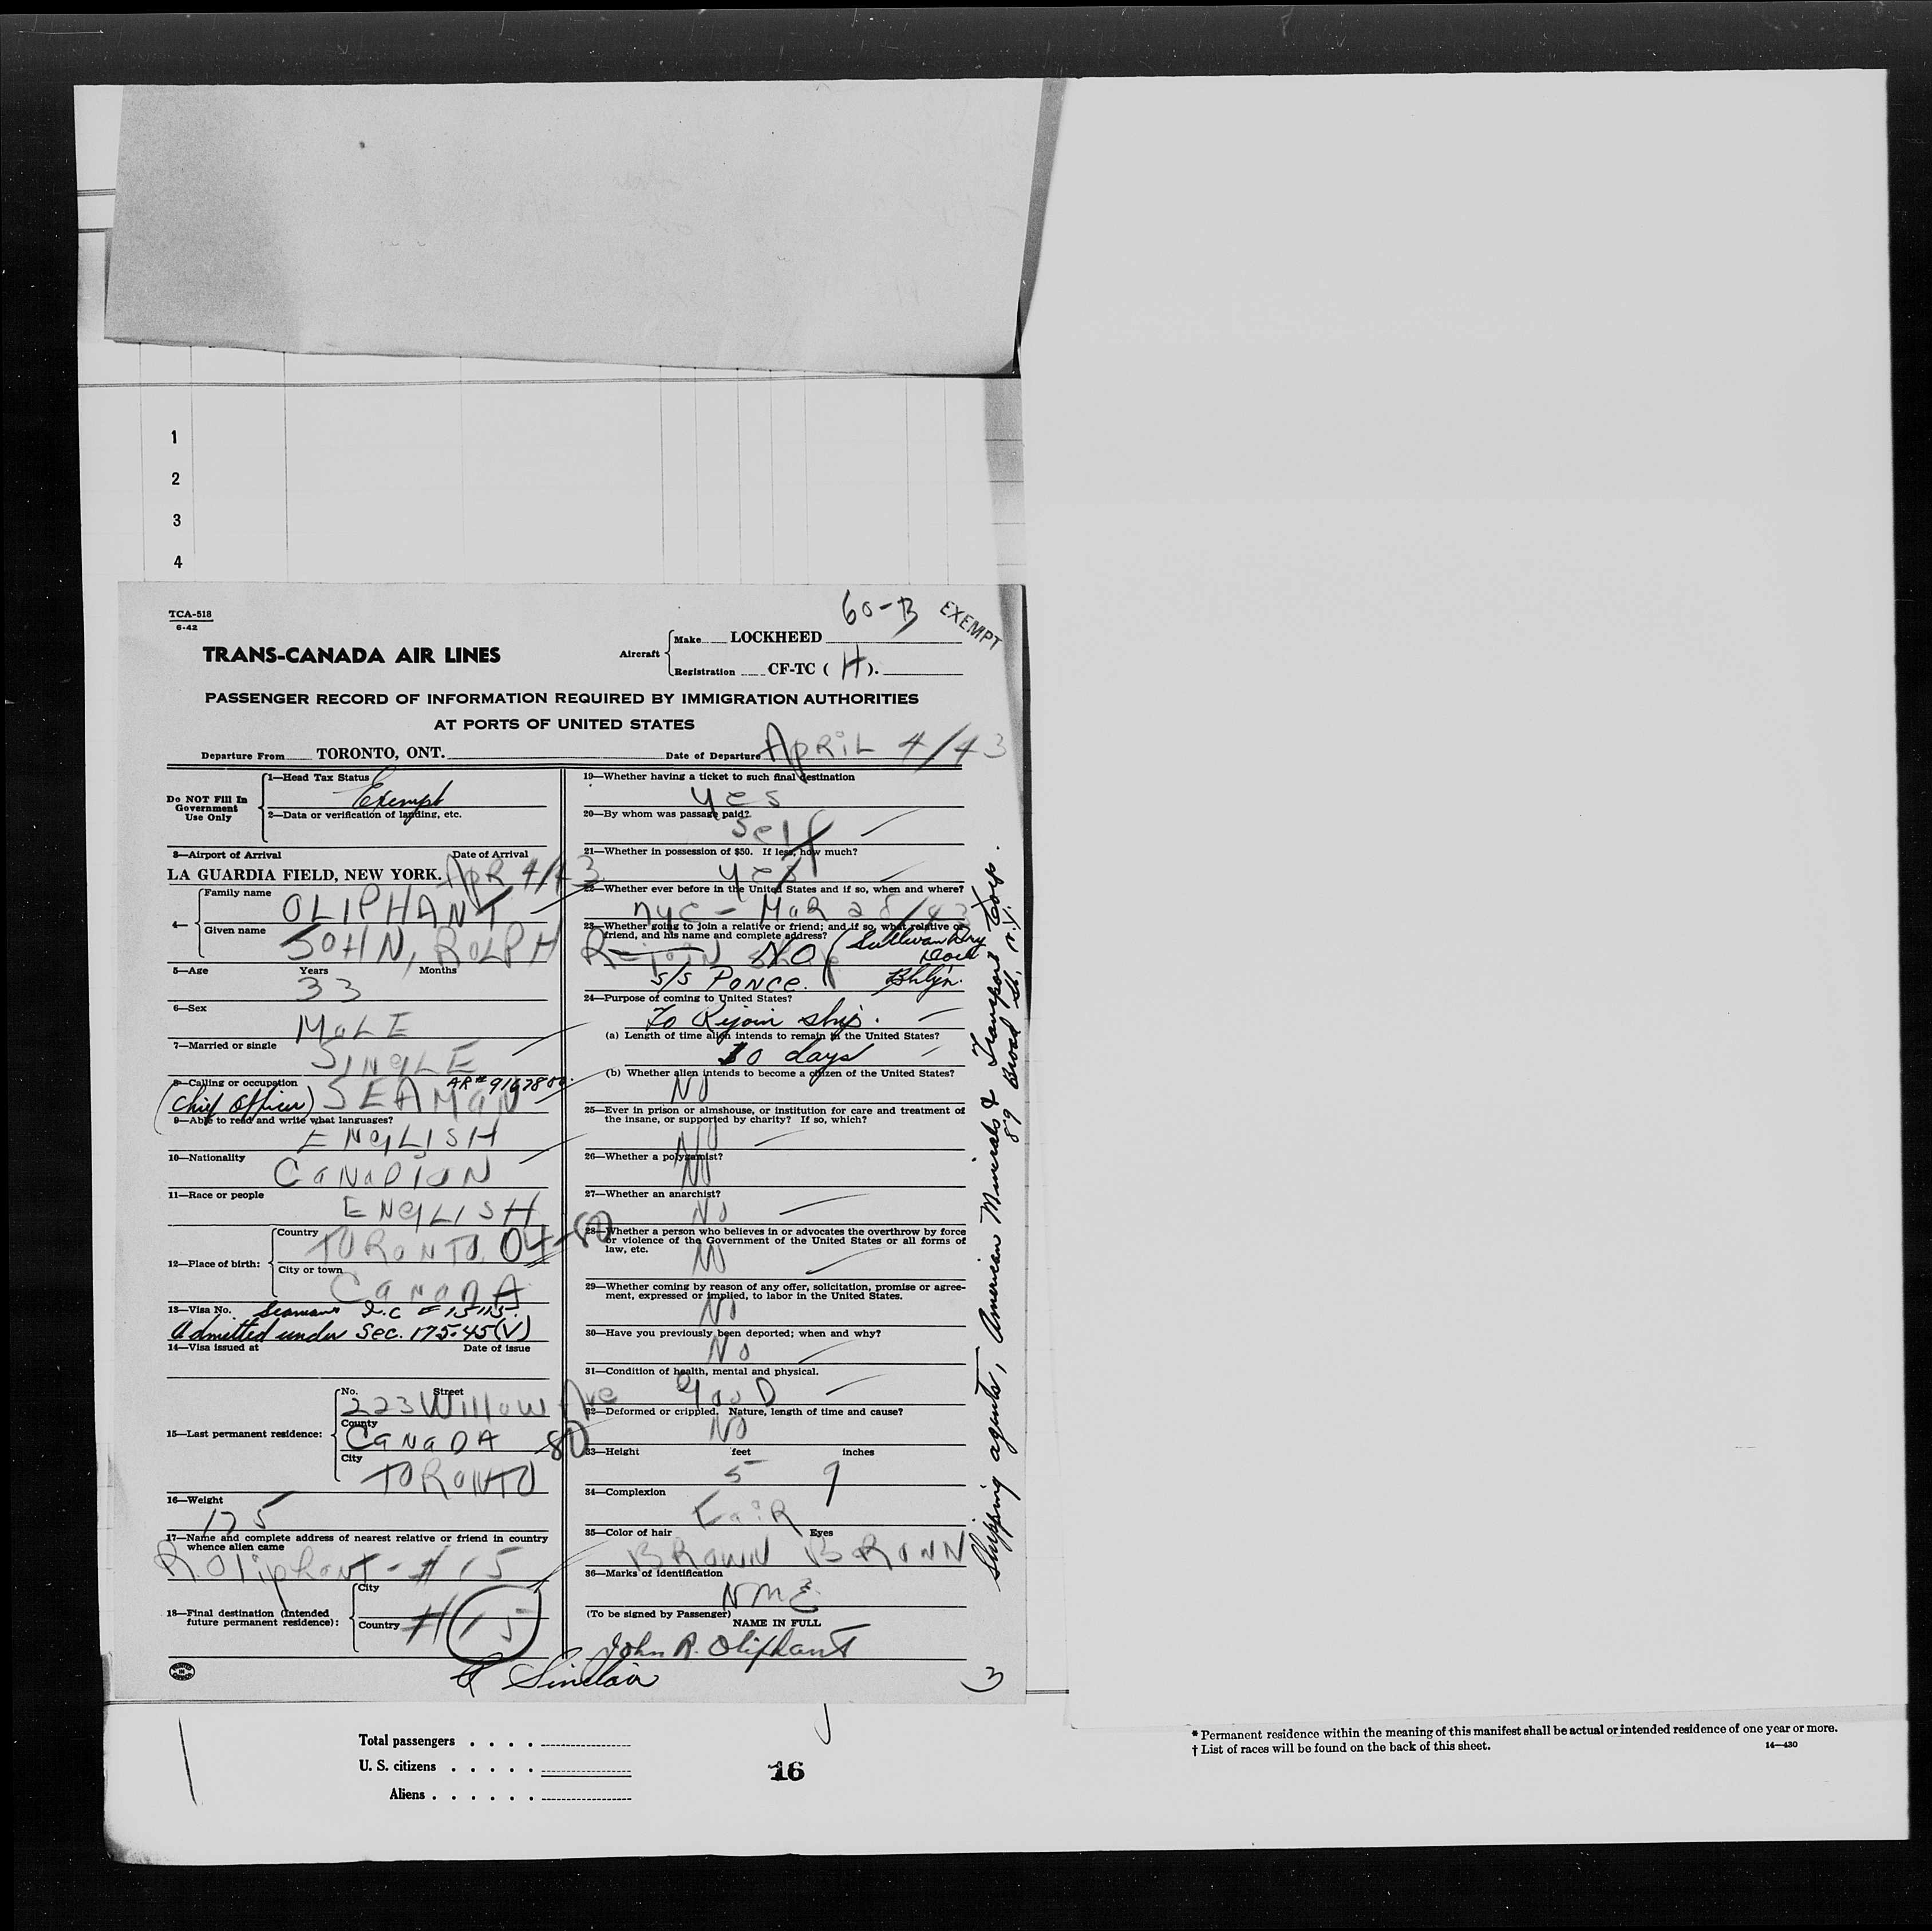 1
2
3
4
TCA-518
6-42
60-B EXEMPT
TRANS-CANADA AIR LINES
Aircraft
Make LOCKHEED
Registration CF-TC ( H ).
PASSENGER RECORD OF INFORMATION REQUIRED BY IMMIGRATION AUTHORITIES
AT PORTS OF UNITED STATES
Departure From TORONTO, ONT. Date of Departure APRIL 4/43
Do NOT Fill In
Government
Use Only
1—Head Tax Status
Exempt
2—Data or verification of landing, etc.
3—Airport of Arrival Date of Arrival
LA GUARDIA FIELD, NEW YORK. APR 4/43
4—
Family name
OLIPHANT
Given name
JOHN, ROLPH
5—Age Years Months
33
6—Sex
MaLE
7—Married or single
SINGLE
8—Calling or occupation AR# 9167800
(Chief Officer) SEAMAN
9—Able to read and write what languages?
ENGLISH
10—Nationality
CANADIAN
11—Race or people
ENGLISH
12—Place of birth:
Country
TORONTO 04-80
City or town
CANADA
13—Visa No. Seamans I.C # 15115.
Admitted under Sec. 175.45(V)
14—Visa issued at Date of issue
15—Last permanent residence:
No. Street
223 Willow Ave
County
CANADA 80
City
TORONTO
16—Weight
175
17—Name and complete address of nearest relative or friend in country
whence alien came
R. Oliphant - #15
18—Final destination (Intended
future permanent residence):
City
Country #15
19—Whether having a ticket to such final destination
yes
20—By whom was passage paid?
Self
21—Whether in possession of $50. If less, how much?
yes
22—Whether ever before in the United States and if so, when and where?
NYC - MaR 28/43
23—Whether going to join a relative or friend; and if so, what relative or
friend, and his name and complete address?
Rejoin Ship NO (Sullivan Dry
Dock
S/S PONCE. Bklyn.
24—Purpose of coming to United States?
To Rejoin ship.
(a) Length of time alien intends to remain in the United States?
10 days
(b) Whether alien intends to become a citizen of the United States?
NO
25—Ever in prison or almshouse, or institution for care and treatment of
the insane, or supported by charity? If so, which?
NO
26—Whether a polygamist?
NO
27—Whether an anarchist?
NO
28—Whether a person who believes in or advocates the overthrow by force
or violence of the Government of the United States or all forms of
law, etc.
NO
29—Whether coming by reason of any offer, solicitation, promise or agree-
ment, expressed or implied, to labor in the United States.
NO
30—Have you previously been deported; when and why?
NO
31—Condition of health, mental and physical.
GooD
32—Deformed or crippled. Nature, length of time and cause?
NO
33—Height feet inches
5 9
34—Complexion
FaiR
35—Color of hair Eyes
BROWN BROWN
36—Marks of identification
(To be signed by Passenger)
NAME IN FULL
John R. Oliphant
Sinclair
3
Shipping agents, American Minerals & Transport Corp.
89 Broad St. N.Y.
Total passengers . . . .
U. S. citizens . . . . .
Aliens . . . . . .
16
* Permanent residence within the meaning of this manifest shall be actual or intended residence of one year or more.
† List of races will be found on the back of this sheet. 14—430